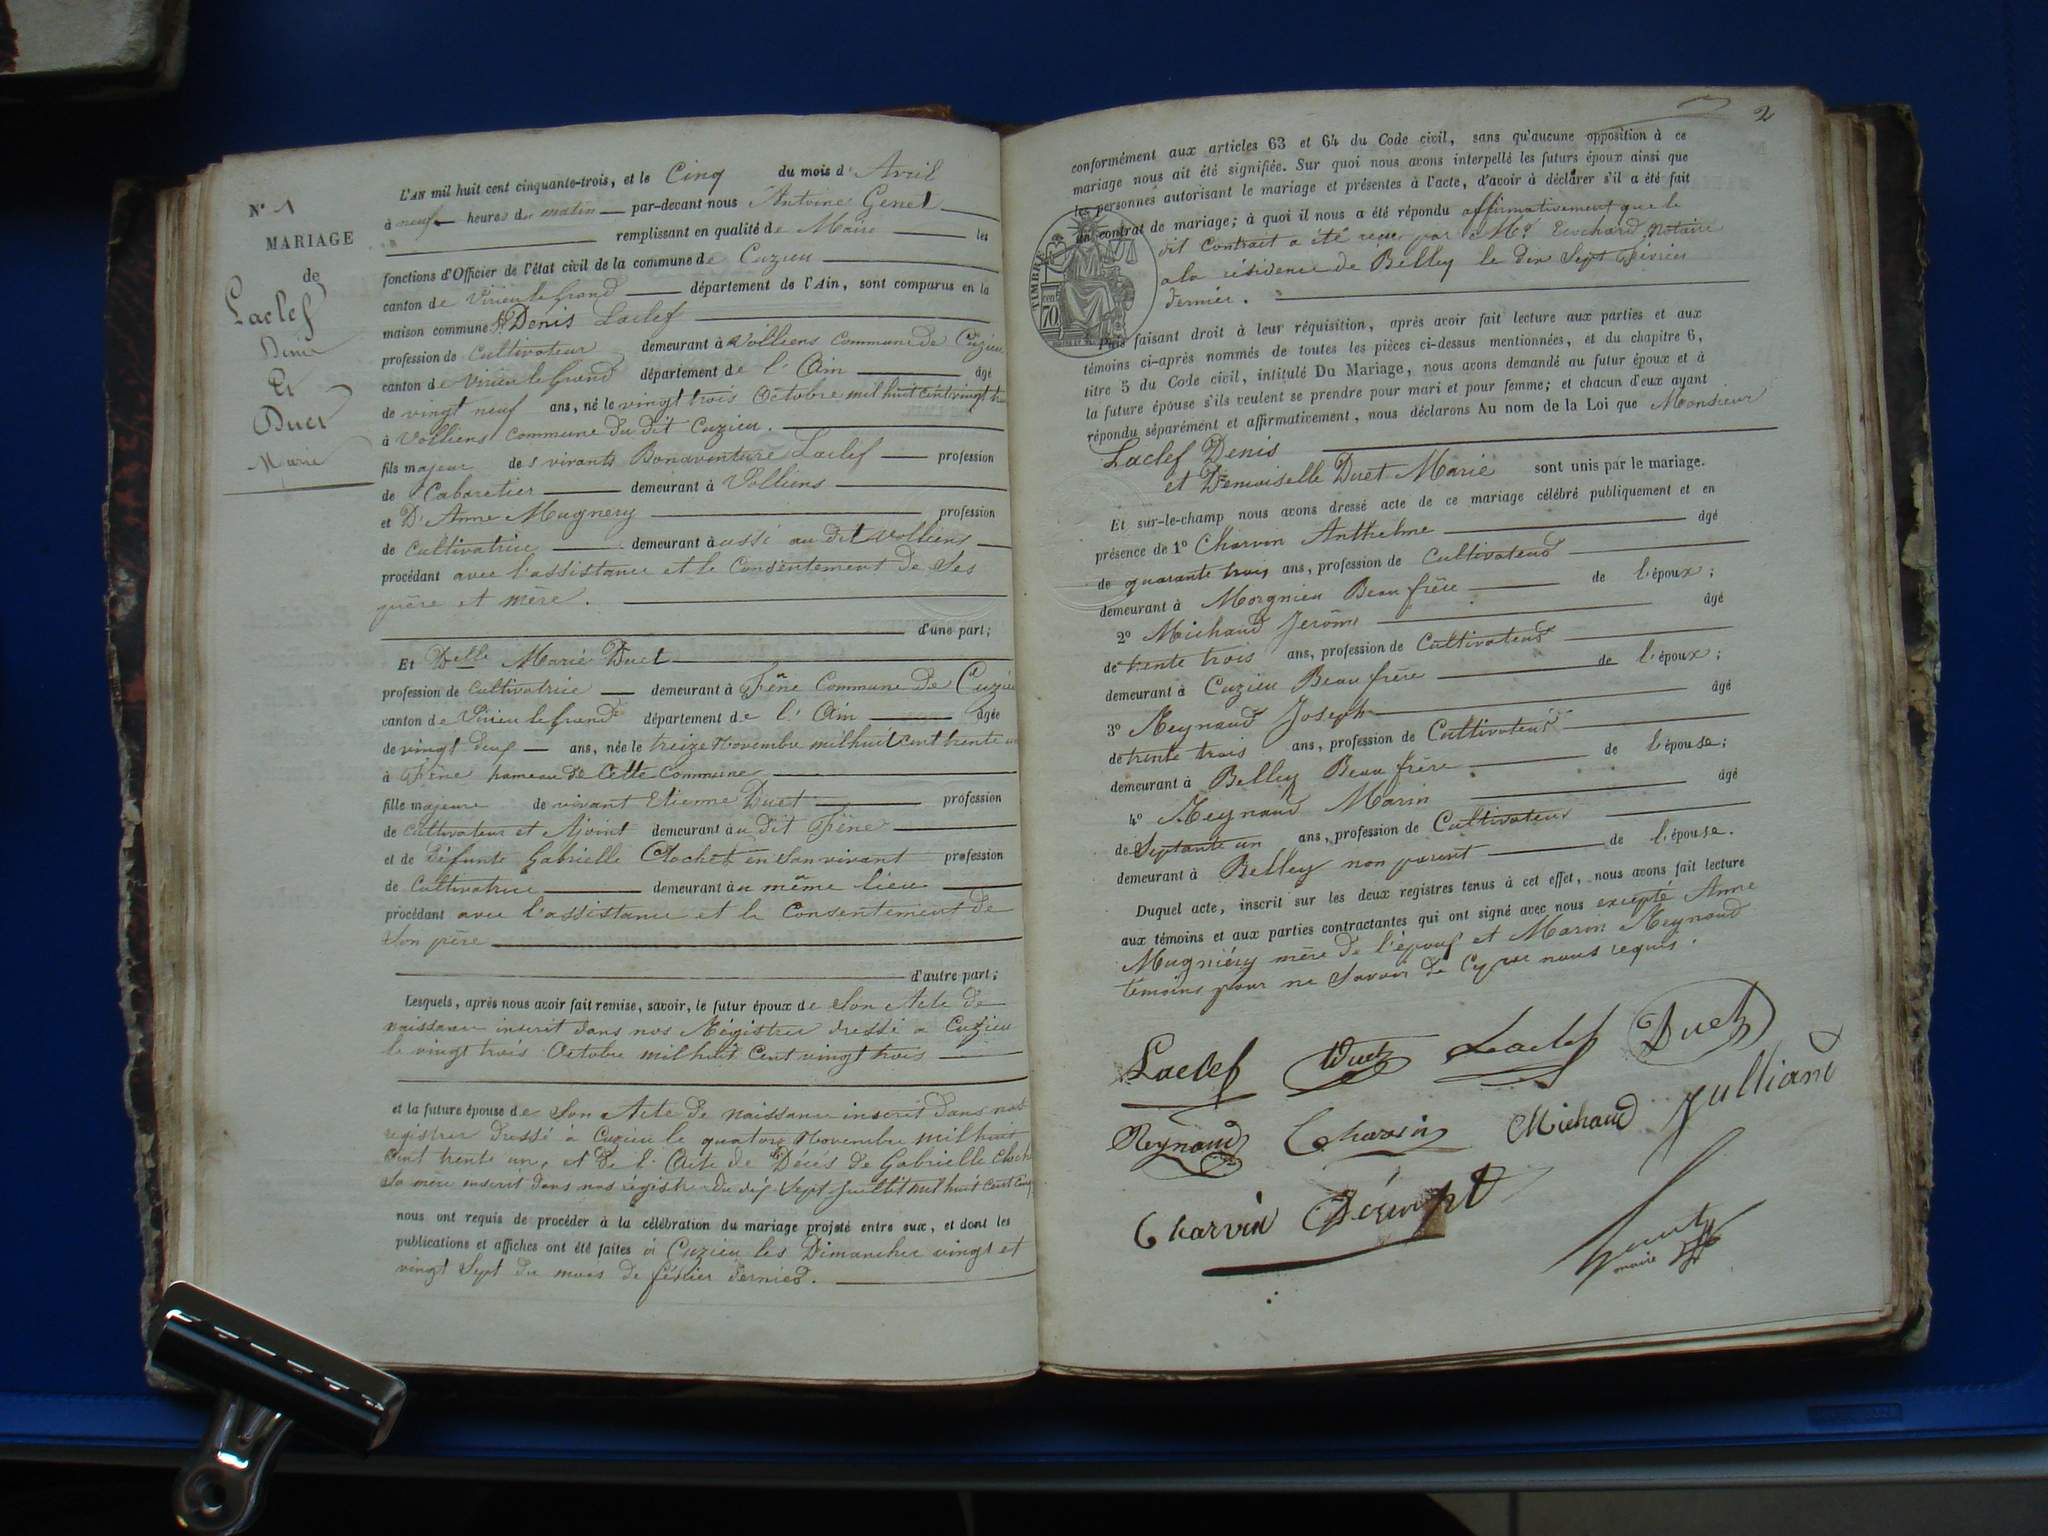 N° 1
MARIAGE
de
Laclef
Denis
Et
Duet
Marie
L'AN mil huit cent cinquante-trois, et le Cinq du mois d'Avril
à neuf heures du matin par-devant nous Antoine Genet
remplissant en qualité de Maire les
fonctions d'Officier de l'état civil de la commune de Cuzieu
canton de Virieu le Grand département de l'Ain, sont comparus en la
maison commune Denis Laclef
profession de cultivateur demeurant à Volliens Commune de Cuzieu
canton de Virieu le Grand département de l'Ain âgé
de vingt neuf ans, né le vingt trois Octobre mil huit cent vingt trois
à Volliens Commune du dit Cuzieu.
fils majeur des vivants Bonaventure Laclef profession
de Cabaretier demeurant à Volliens
et D' Anne Mugnery profession
de Cultivatrice demeurant aussi au dit Volliens
procédant avec l'assistance et le Consentement de Ses
père et mère.
d'une part;
Et Delle Marie Duet
profession de cultivatrice demeurant à Fêne Commune de Cuzieu
canton de Virieu le grand département de l'Ain âgée
de vingt deux ans, née le treize Novembre mil huit Cent trente un
à Fêne hameau de Cette Commune
fille majeure de vivant Etienne Duet profession
de cultivateur et Ajoint demeurant au dit Fêne
et de Défunte Gabrielle Clochet en Son vivant profession
de Cultivatrice demeurant au même lieu
procédant avec l'assistance et le Consentement de
Son père
d'autre part;
Lesquels, après nous avoir fait remise, savoir, le futur époux de Son Acte de
naissance inscrit dans nos Régistres dressé à Cuzieu
le vingt trois Octobre mil huit Cent vingt trois
et la future épouse de Son Acte de naissance inscrit dans nos
registres dressé à Cuzieu le quatorze Novembre mil huit
Cent trente un, et de l'Acte de Décés de Gabrielle Cloch
Sa mère inscrit dans nos régistres du dix Sept Juillet mil huit Cent
nous ont requis de procéder à la célébration du mariage projeté entre eux, et dont les
publications et affiches ont été faites à Cuzieu les Dimanches vingt et
vingt Sept du mois de février dernier.
2
conformément aux articles 63 et 64 du Code civil, sans qu'aucune opposition à ce
mariage nous ait été signifiée. Sur quoi nous avons interpellé les futurs époux ainsi que
les personnes autorisant le mariage et présentes à l'acte, d'avoir à déclarer s'il a été fait
un contrat de mariage; à quoi il nous a été répondu affirmativement que le
dit Contract a été reçu par Me notaire
a la résidence de Belley le dix Sept Février
dernier.
TIMBRE
70
Puis faisant droit à leur réquisition, après avoir fait lecture aux parties et aux
témoins ci-après nommés de toutes les pièces ci-dessus mentionnées, et du chapitre 6,
titre 5 du Code civil, intitulé Du Mariage, nous avons demandé au futur époux et à
la future épouse s'ils veulent se prendre pour mari et pour femme; et chacun d'eux ayant
répondu séparément et affirmativement, nous déclarons Au nom de la Loi que Monsieur
Laclef Denis
et Demoiselle Duet Marie sont unis par le mariage.
Et sur-le-champ nous avons dressé acte de ce mariage célébré publiquement et en
présence de 1° Charvin Anthelme âgé
de quarante trois ans, profession de Cultivateur
demeurant à Morgnieu Beau frère de l'époux;
2° Michaud Jerôme âgé
de trente trois ans, profession de Cultivateur
demeurant à Cuzieu Beau frère de l'époux;
3° Reynaud Joseph âgé
de trente trois ans, profession de Cultivateur
demeurant à Belley Beau frère de l'épouse;
4° Reynaud Marin âgé
de Septante un ans, profession de Cultivateur
demeurant à Belley non parent de l'épouse.
Duquel acte, inscrit sur les deux registres tenus à cet effet, nous avons fait lecture
aux témoins et aux parties contractantes qui ont signé avec nous excepté Anne
Mugniéry mère de l'époux et Marin Reynaud
témoins pour ne Savoir de Ce par nous requis.
Laclef Duet Laclef Duet
Reynaud Charvin Michaud Julliand
Charvin
maire